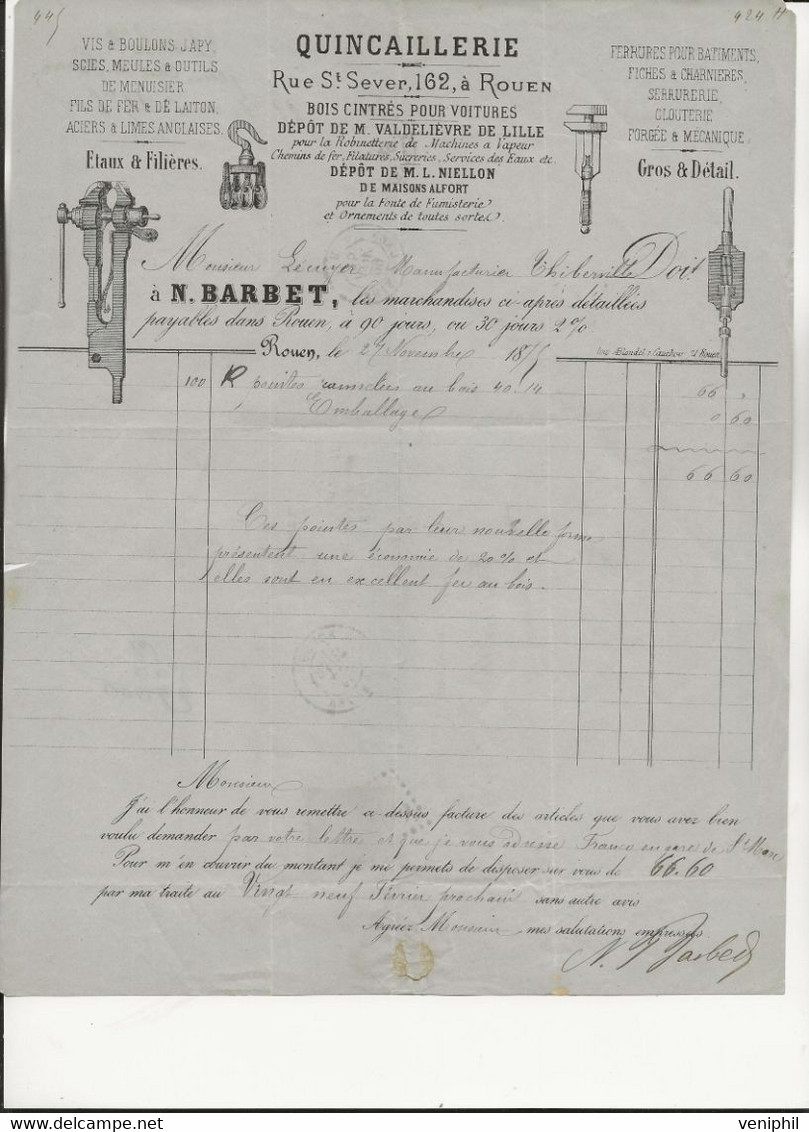 445
424 H
VIS & BOULONS JAPY,
SCIES, MEULES & OUTILS
DE MENUISIER
FILS DE FER & DE LAITON,
ACIERS & LIMES ANGLAISES.
Etaux & Filières.
QUINCAILLERIE
Rue St. Sever, 162, à Rouen
BOIS CINTRÉS POUR VOITURES
DÉPÔT DE M. VALDELIÈVRE DE LILLE
pour la Robinetterie de Machines a Vapeur
Chemins de fer, Filatures, Sucreries, Services des Eaux etc.
DÉPÔT DE M. L. NIELLON
DE MAISONS ALFORT
pour la Fonte de Fumisterie
et Ornements de toutes sortes.
FERRURES POUR BATIMENTS,
FICHES & CHARNIERES,
SERRURERIE,
CLOUTERIE
FORGÉE & MÉCANIQUE.
Gros & Détail.
Monsieur Lecuyer Manufacturier Thiberville Doit
à N. BARBET, les marchandises ci-après détaillées
payables dans Rouen, à 90 jours, ou 30 jours 2%
Rouen, le 27 Novembre 1875
100 K pointes cannelées au bois 40.14 66 "
Emballage 0 60
66 60
Ces pointes par leur nouvelle forme
présentent une économie de 20% et
elles sont en excellent fer au bois.
Monsieur
J'ai l'honneur de vous remettre ci-dessus facture des articles que vous avez bien
voulu demander par votre lettre et que je vous adresse Franco en gare de St Mars
Pour m'en couvrir du montant je me permets de disposer sur vous de 66.60
par ma traite au Vingt neuf Février prochain sans autre avis
Agréez Monsieur mes salutations empressées
N. Barbet
veniphil